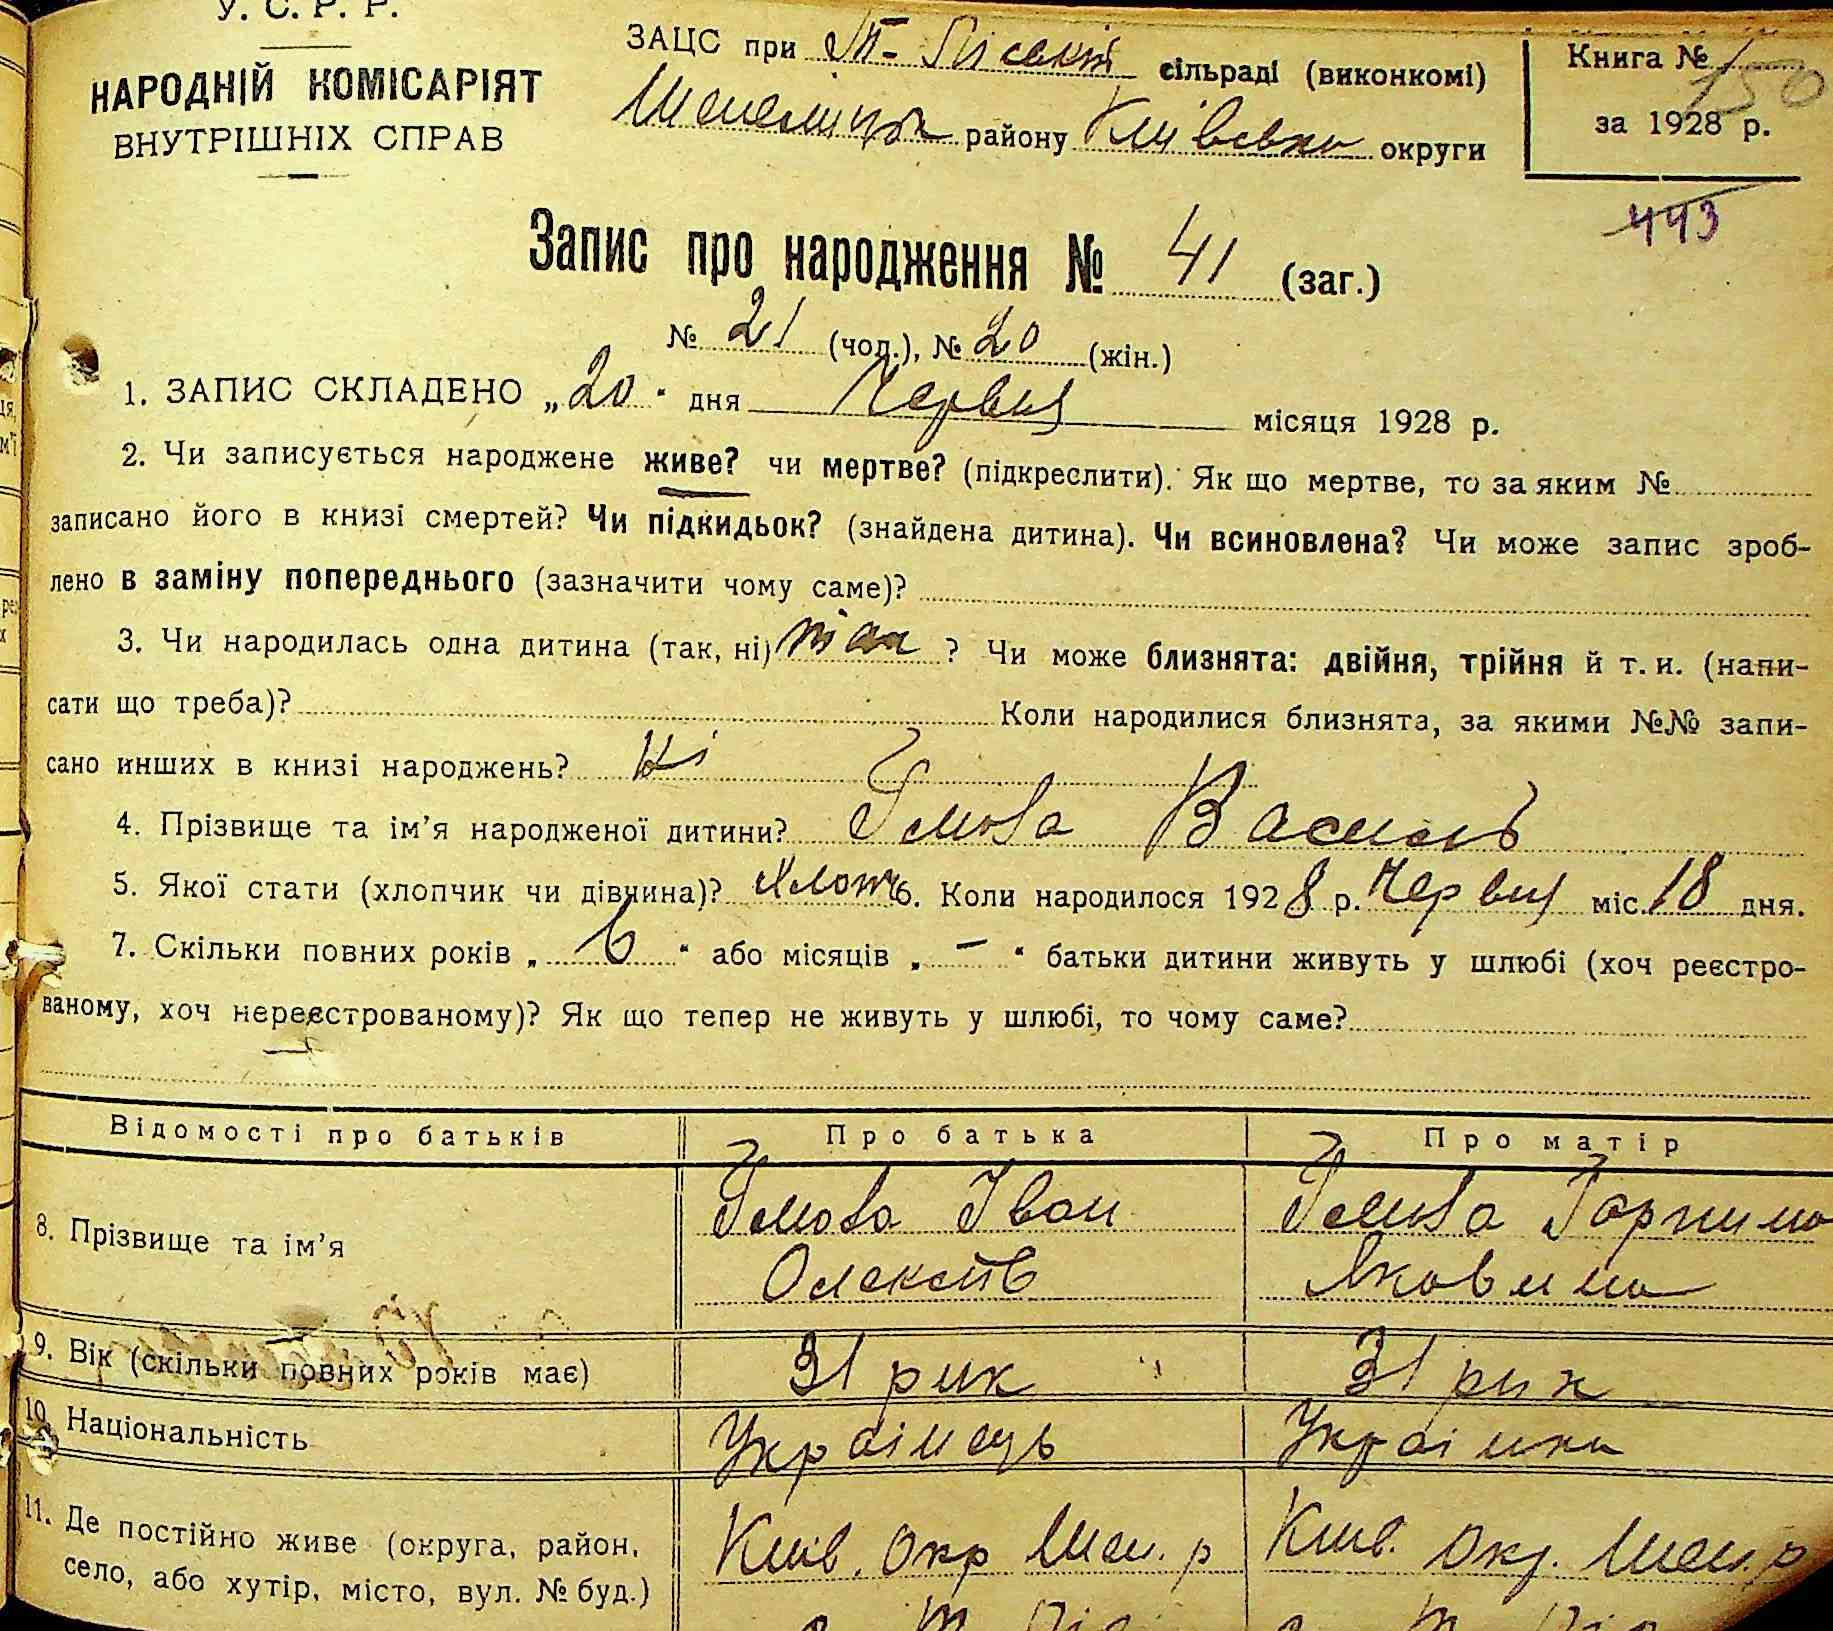 У. С. Р. Р.
НАРОДНІЙ КОМІСАРІЯТ
ВНУТРІШНІХ СПРАВ
ЗАЦС при сільраді (виконкомі)
району Київська округи
Книга № 1
150
за 1928 р.
443
Запис про народження № 41 (заг.)
№ 21 (чол.), № 20 (жін.)
1. ЗАПИС СКЛАДЕНО „20“ дня Червня місяця 1928 р.
2. Чи записується народжене живе? чи мертве? (підкреслити). Як що мертве, то за яким №
записано його в книзі смертей? Чи підкидьок? (знайдена дитина). Чи всиновлена? Чи може запис зроб-
лено в заміну попереднього (зазначити чому саме)?
3. Чи народилась одна дитина (так, ні) так ? Чи може близнята: двійня, трійня й т. и. (напи-
сати що треба)? Коли народилися близнята, за якими №№ запи-
сано инших в книзі народжень? Ні
4. Прізвище та ім'я народженої дитини? Василь
5. Якої стати (хлопчик чи дівчина)? Хлопч 6. Коли народилося 1928 р. Червня міс. 18 дня.
7. Скільки повних років „ 6 “ або місяців „ – “ батьки дитини живуть у шлюбі (хоч реєстро-
ваному, хоч нереєстрованому)? Як що тепер не живуть у шлюбі, то чому саме?
Відомості про батьків Про батька Про матір
8. Прізвище та ім'я Іван Горпина
Олексів Яковина
9. Вік (скільки повних років має) 31 рик 31 рик
10. Національність Українець Українка
11. Де постійно живе (округа, район, Київ. Окр Шеп. р Київ. Окр. Шеп. р
село, або хутір, місто, вул. № буд.)